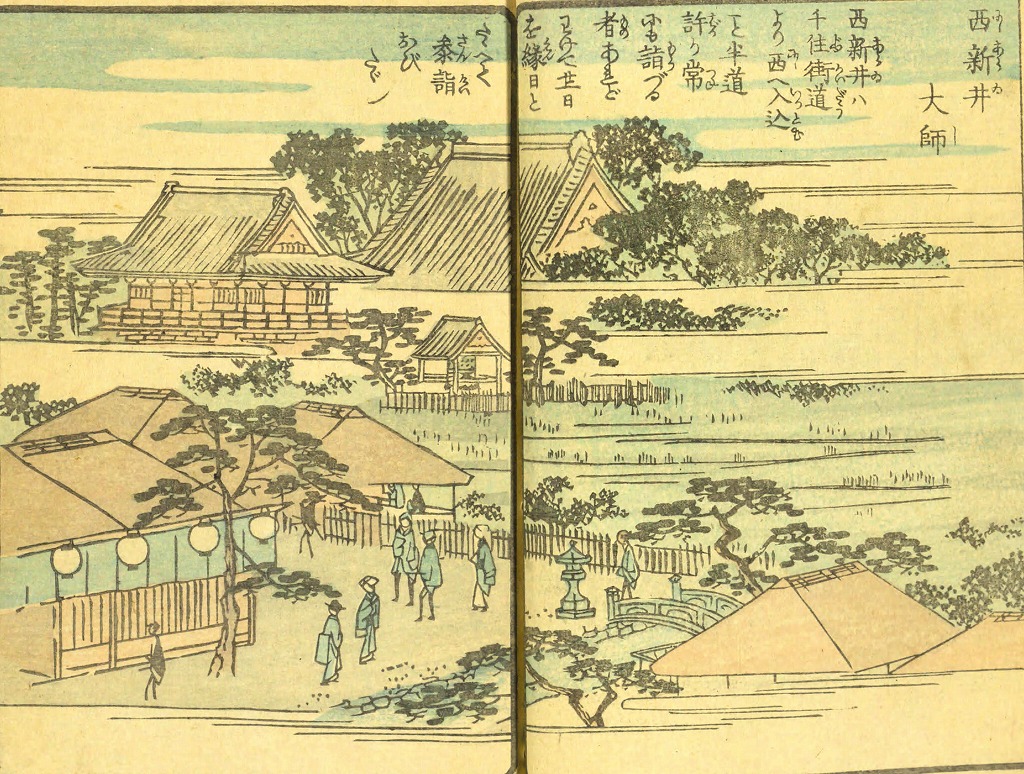 西新井
大師
西新井ハ
千住街道
より西へ入込
こと半道
許り常
にも詣づる
者あれど
わけて廿一日
を縁日と
参詣
おび
たゞし